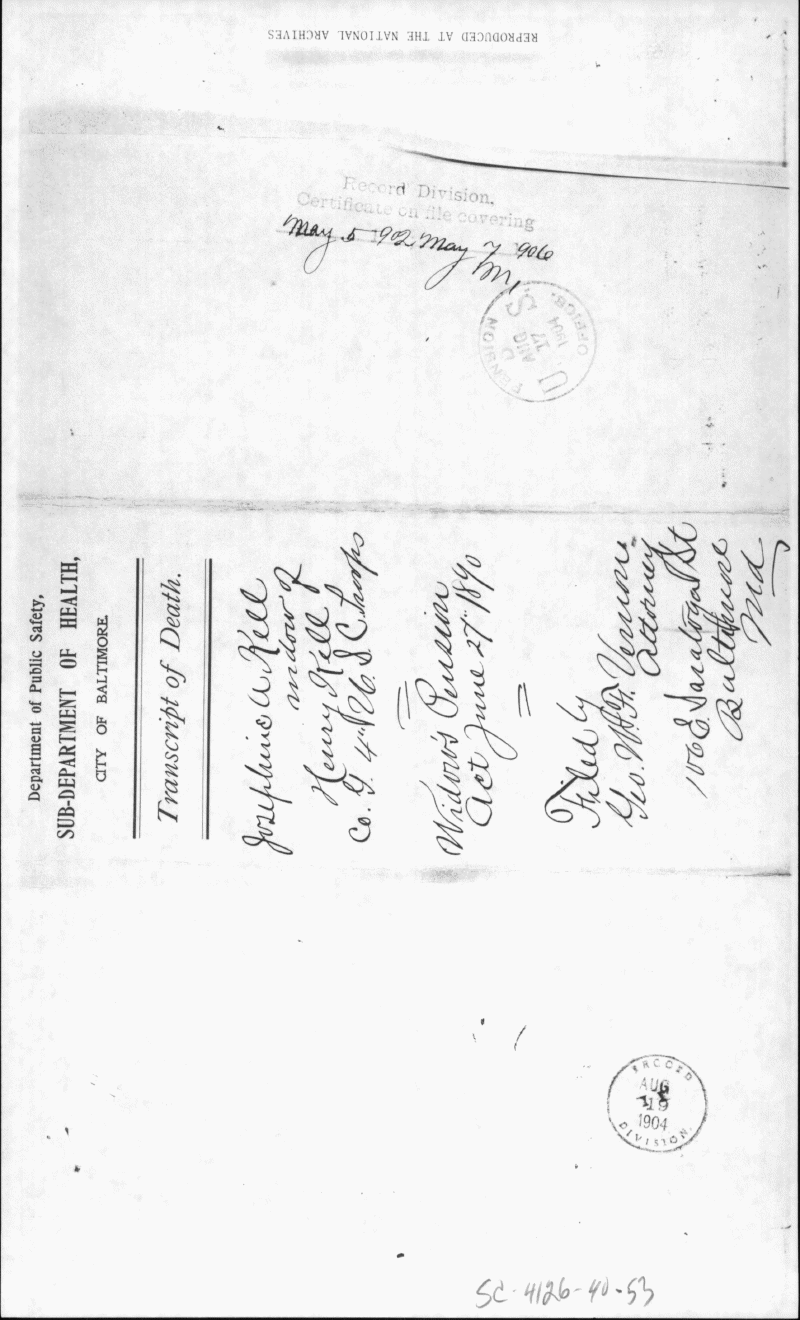 REPRODUCED AT THE NATIONAL ARCHIVES
Record Division,
Certificate on file covering
May 5 902 May 7 906
M,
U.S. PENSION OFFICE.
AUG
17
1904
Department of Public Safety,
SUB-DEPARTMENT OF HEALTH,
CITY OF BALTIMORE
Transcript of Death.
Josephine A Kell
widow of
Henry Kell
Co. G. 4" U.S.C. troops
Widows Pension
Act June 27" 1890
Filed by
Geo. W. F. Vernon
Attorney
106 E Saratoga St
Baltimore
Md
RECORD
AUG
19
1904
DIVISION.
SC-4126-40-53